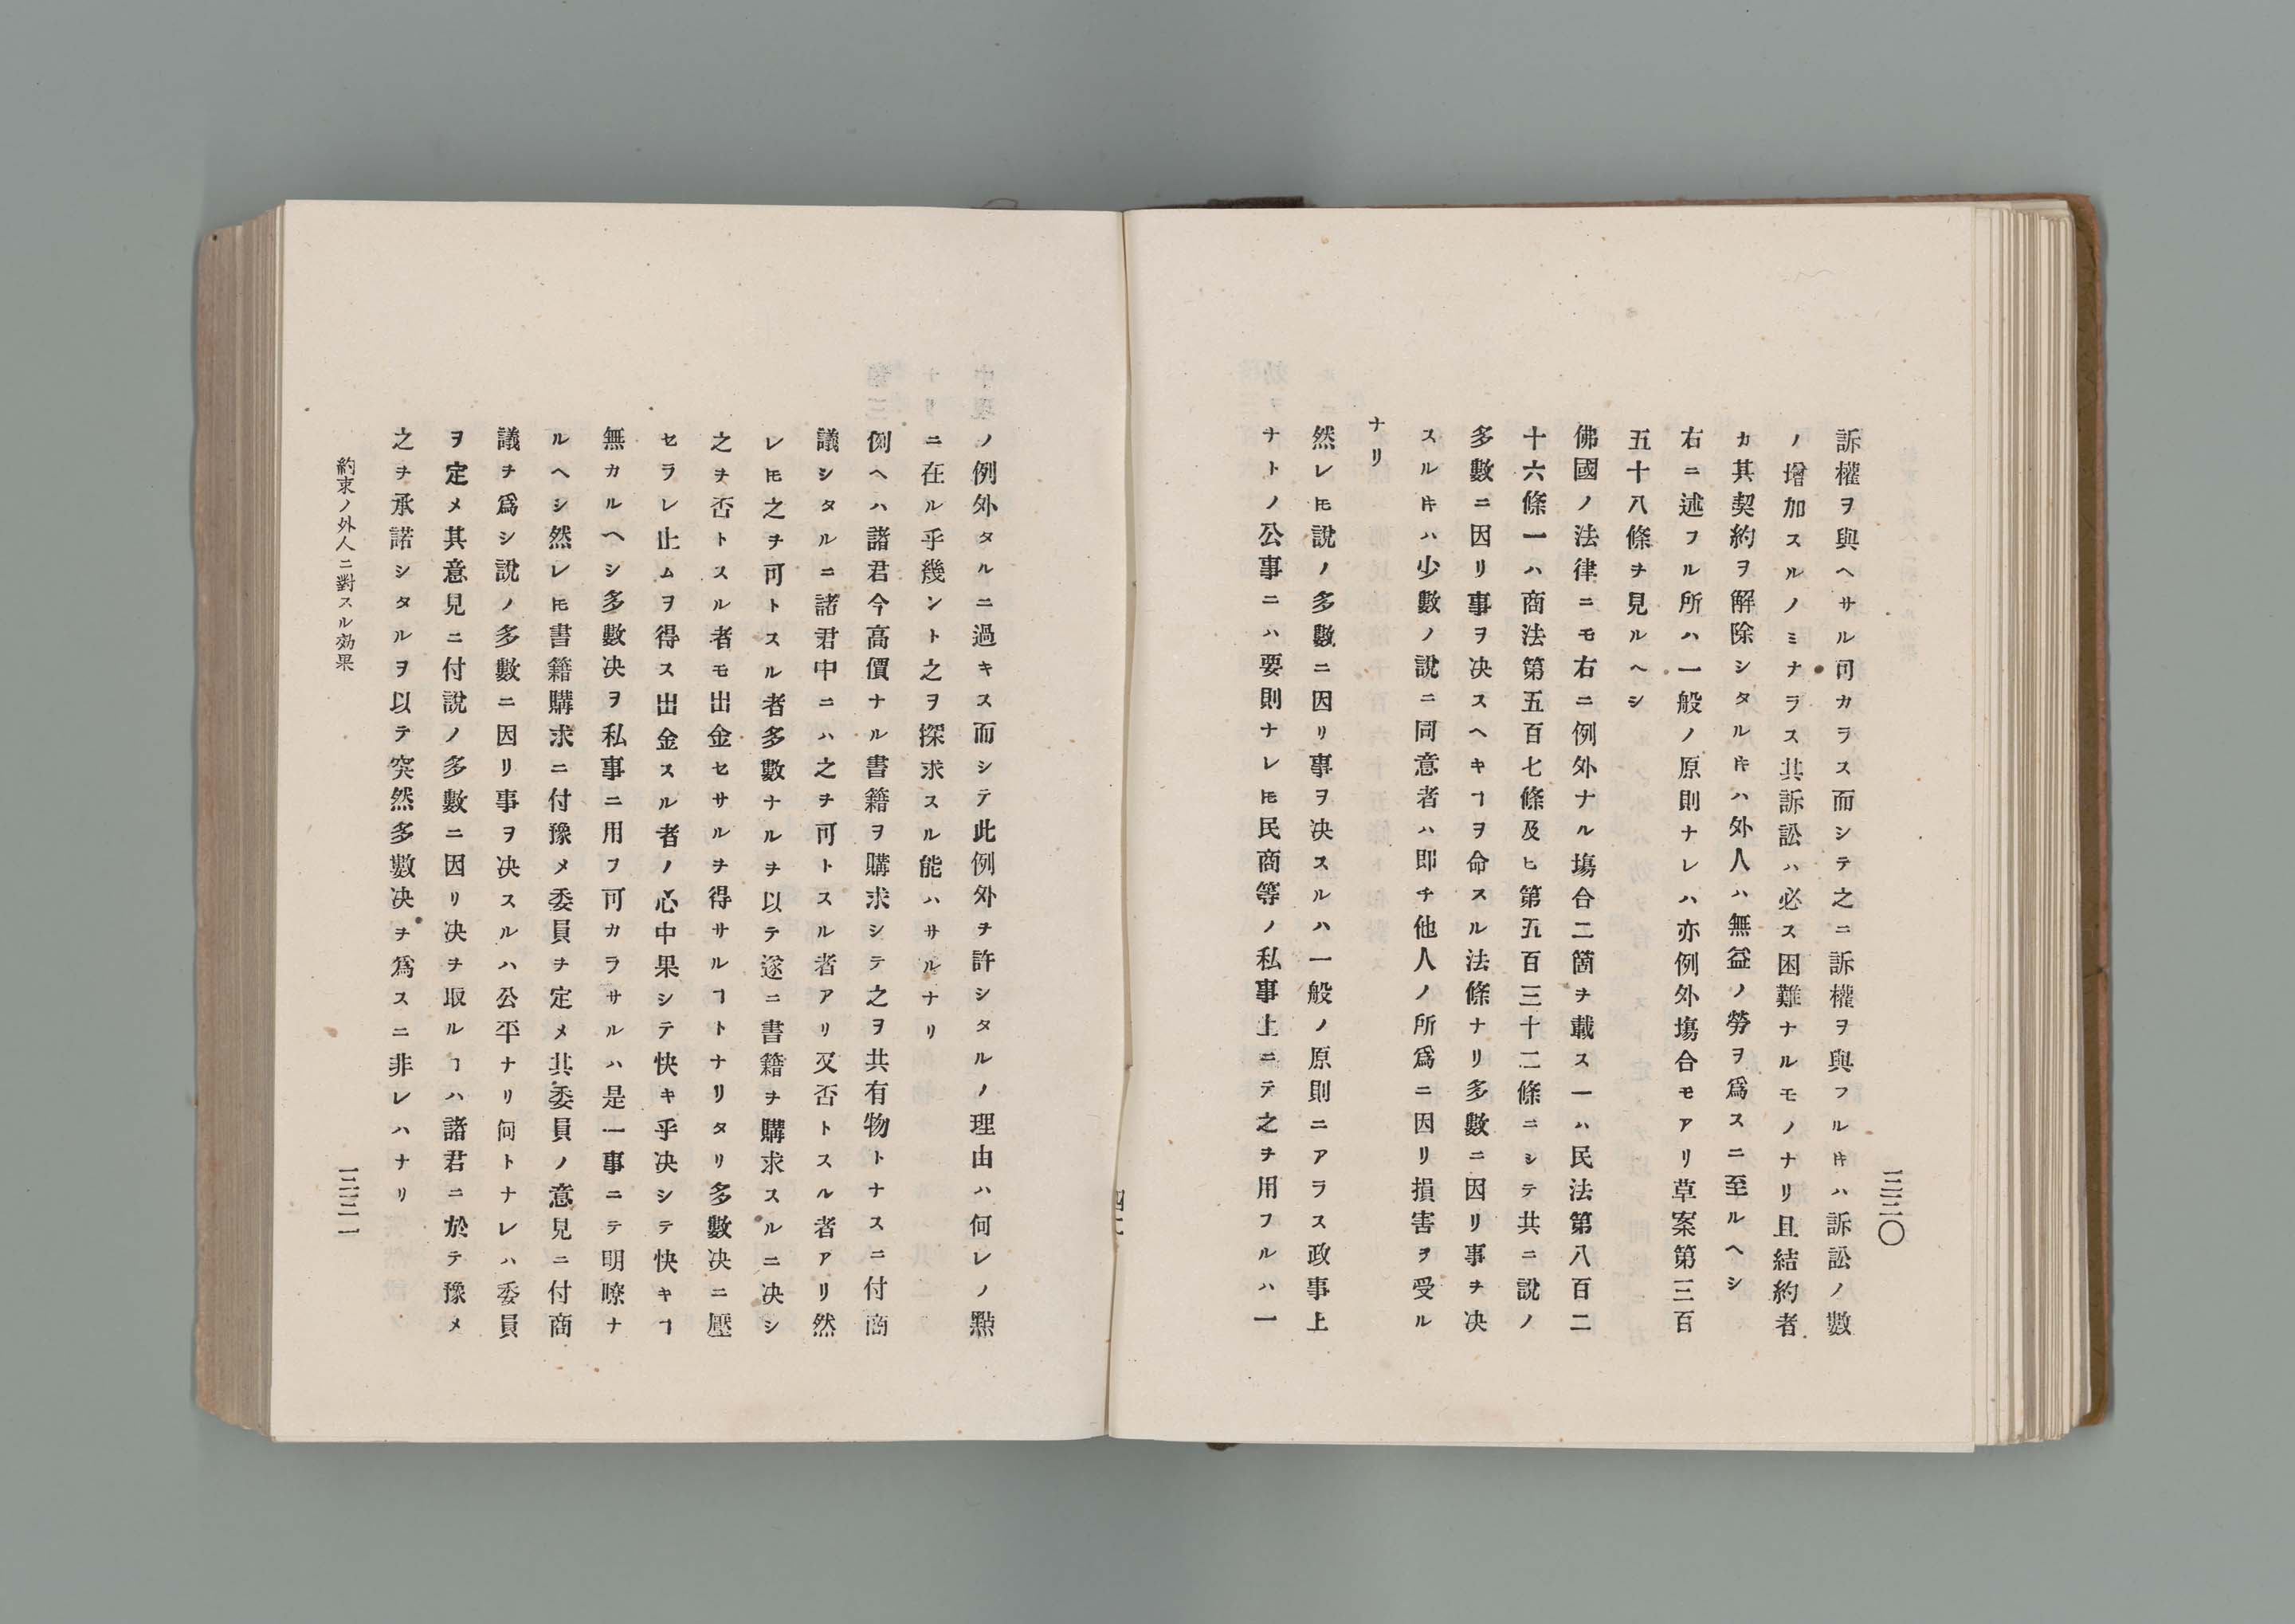 三三〇
訴權ヲ與ヘサル可カラス而シテ之ニ訴權ヲ與フルヿキハ訴訟ノ數
ノ增加スルノミナラス其訴訟ハ必ス困難ナルモノナリ且結約者
カ其契約ヲ解除シタルヿキハ外人ハ無益ノ勞ヲ爲スニ至ルヘシ
右ニ述フル所ハ一般ノ原則ナレハ亦例外塲合モアリ草案第三百
五十八條ヲ見ルヘシ
佛國ノ法律ニモ右ニ例外ナル塲合二箇ヲ載ス一ハ民法第八百二
十六條一ハ商法第五百七條及ヒ第五百三十二條ニシテ共ニ說ノ
多數ニ因リ事ヲ决スヘキヿヲ命スル法條ナリ多數ニ因リ事ヲ决
スル𪜈ハ少數ノ說ニ同意者ハ即チ他人ノ所爲ニ因リ損害ヲ受ル
ナリ
然レ𪜈說ノ多數ニ因リ事ヲ决スルハ一般ノ原則ニアラス政事上
ナトノ公事ニハ要則ナレ𪜈民商等ノ私事上ニテ之ヲ用フルハ一
ノ例外タルニ過キス而シテ此例外ヲ許シタルノ理由ハ何レノ㸃
ニ在ル乎幾ント之ヲ探求スル能ハサルナリ
例ヘハ諸君今高價ナル書籍ヲ購求シテ之ヲ共有物トナスニ付商
議シタルニ諸君中ニハ之ヲ可トスル者アリ又否トスル者アリ然
レ𪜈之ヲ可トスル者多數ナルヲ以テ遂ニ書籍ヲ購求スルニ决シ
之ヲ否トスル者モ出金セサルヲ得サルヿトナリタリ多數决ニ壓
セラレ止ムヲ得ス出金スル者ノ心中果シテ快キ乎决シテ快キヿ
無カルヘシ多數决ヲ私事ニ用フ可カラサルハ是一事ニテ明瞭ナ
ルヘシ然レ𪜈書籍購求ニ付豫メ委員ヲ定メ其委員ノ意見ニ付商
議ヲ爲シ說ノ多數ニ因リ事ヲ决スルハ公平ナリ何トナレハ委員
ヲ定メ其意見ニ付說ノ多數ニ因リ决ヲ取ルヿハ諸君ニ於テ豫メ
之ヲ承諾シタルヲ以テ突然多數决ヲ爲スニ非レハナリ
約束ノ外人ニ對スル効果
三三一